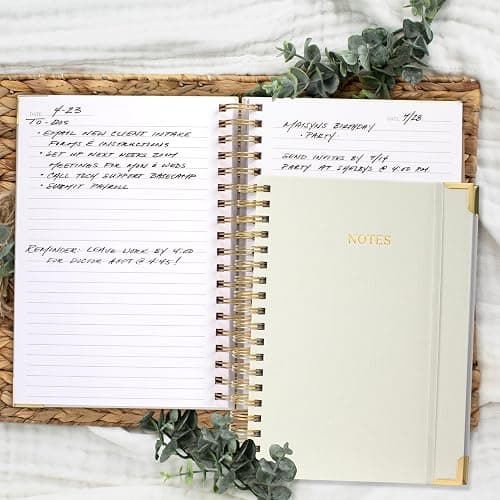 DATE: 4-23
TO-DOS
• EMAIL NEW CLIENT INTAKE
FORMS & INSTRUCTIONS
• SET UP NEXT WEEKS ZOOM
MEETINGS FOR MON & WEDS
• CALL TECH SUPPORT BASECAMP
• SUBMIT PAYROLL
REMINDER: LEAVE WORK BY 4:00
FOR DOCTOR APPT @ 4:45!
DATE: 7/28
MAISYNS BIRTHDAY
• PARTY
SEND INVITES BY 7/14
PARTY AT SHELBY'S @ 4:00 PM
NOTES